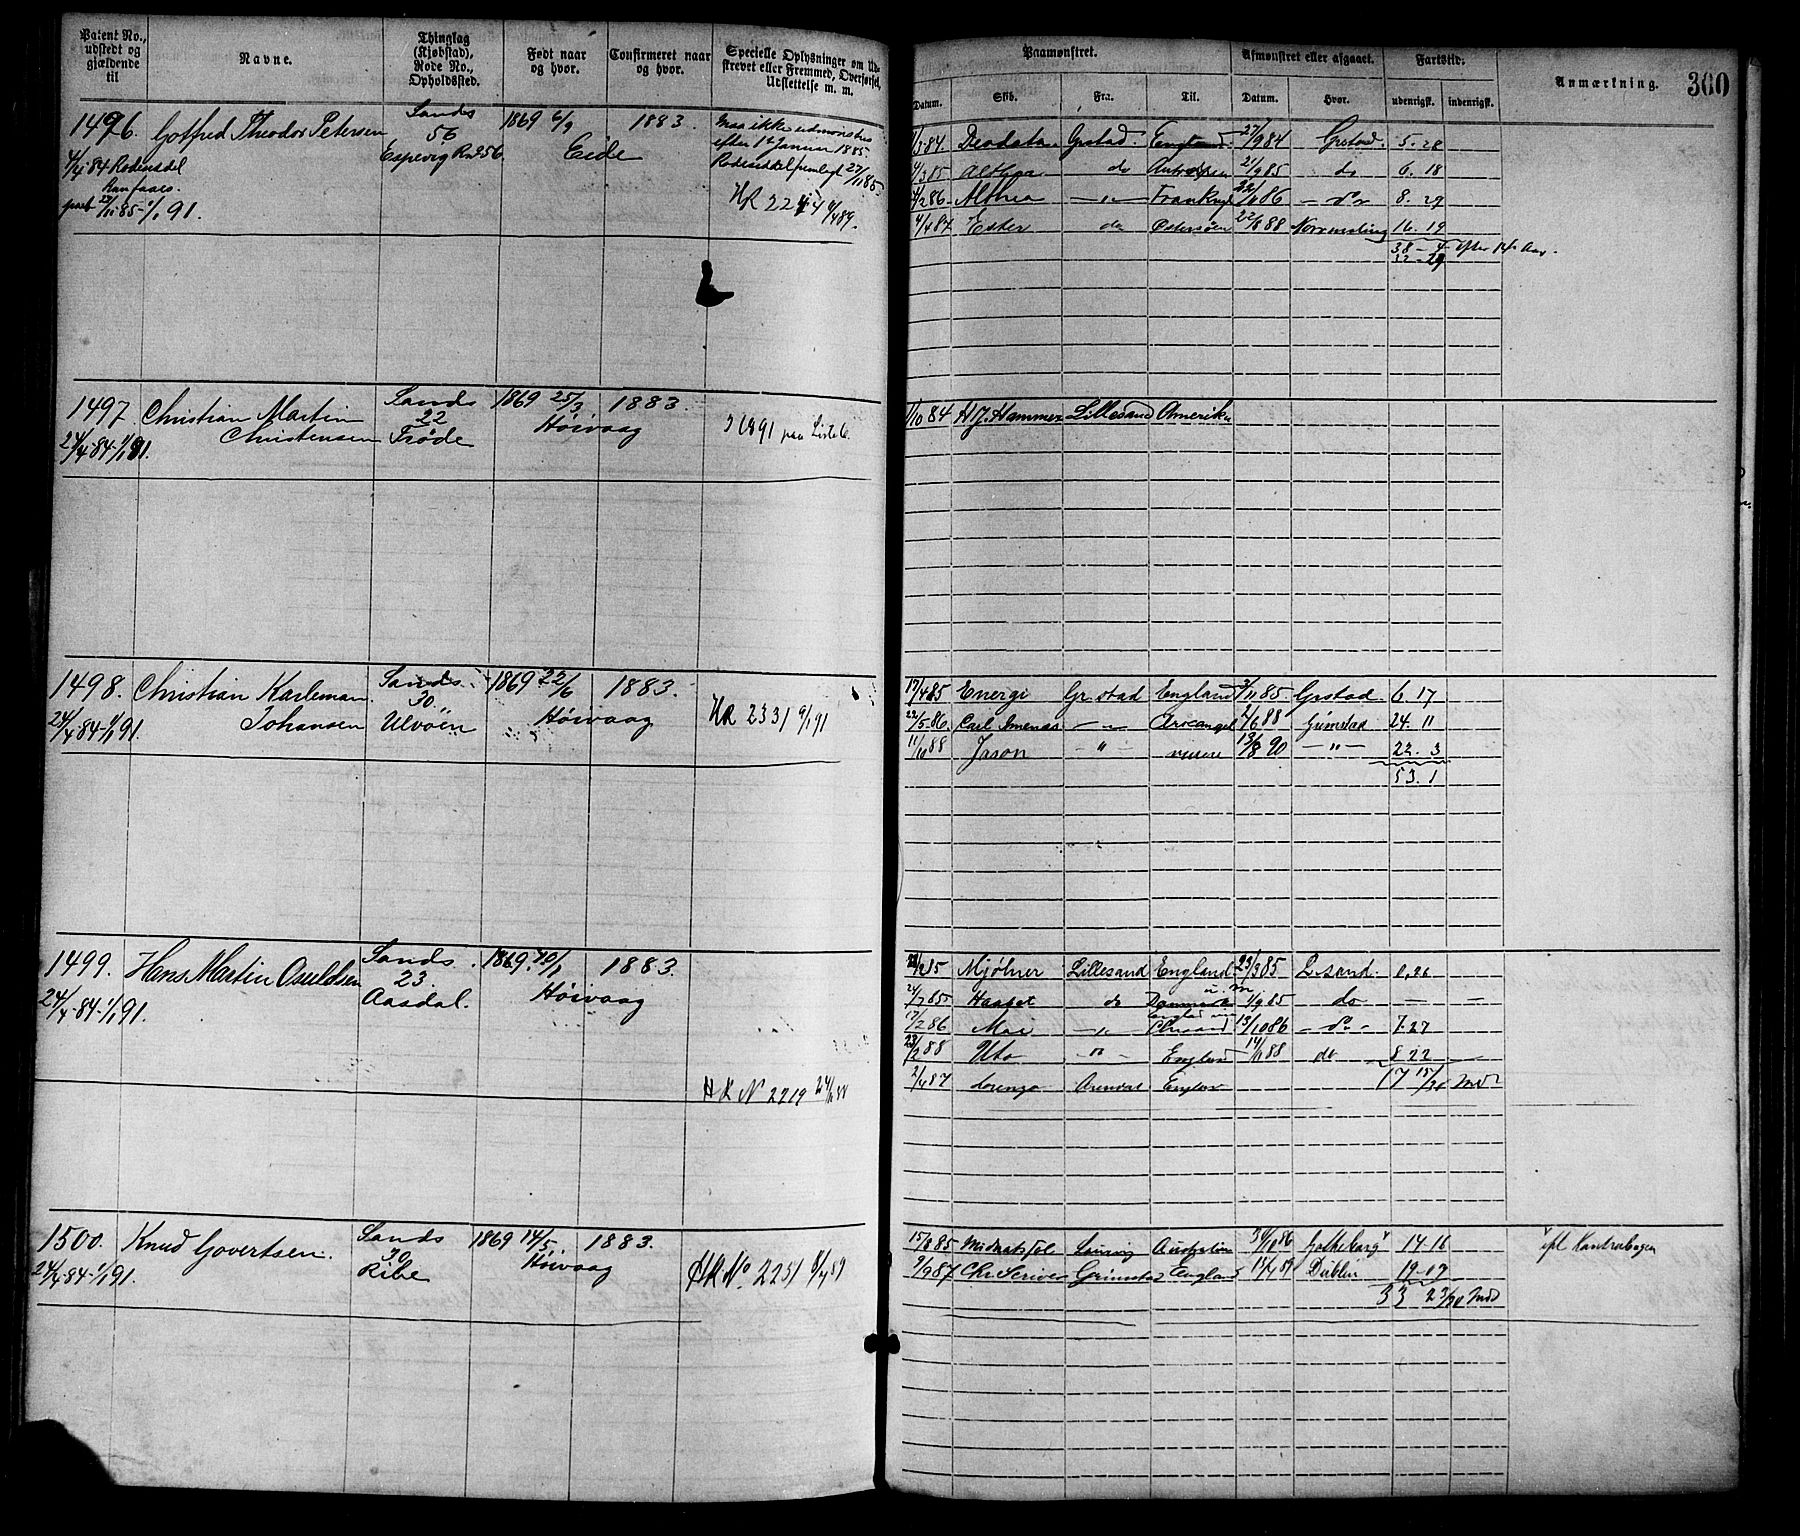 Patent No., udstedt og gjældende til
Navne.
Thinglag (Kjøbstad), Rode No., Opholdssted.
Født naar og hvor.
Confirmeret naar og hvor.
Specielle Oplysninger om Ud-
skrevet eller Fremmed, Overførsel,
Udslettelse m. m.
Paamønstret.
Afmønstret eller afgaaet.
Fartstid:
Anmærkning.
300
Datum.
Skib.
Fra.
Til.
Datum.
Hvor.
udenrigsk.
indenrigsk.
1496. Gotfred Theodor Petersen
Sands
56
Espevig Rn 256
1869 6/9
Eide
1883.
maa ikke udmønstres
efter 1st Januar 1885.
27/11 85
HR 2244 4/4 89.
4/4 84 Rodeseddel
1/1 91.
1/3 84. Deodata Grstad. England 27/9 84 Grstad. 5. 28
4/3 85 Althea do Antverpen 21/9 85 do 6. 18
4/2 86 Althea — " — 22/10 86 — do 8. 29
4/4 87 Ester do Østersøen 22/8 88 16. 19
38 — 4 efter 14 Aar.
32 — 29
1497 Christian Martin
Christensen
24/4 84-1/1 91.
Sands
22
Trøde
1869 25/3
Høivaag
1883.
I 1891 paa Liste
1/10 84 H J. Hammer Lillesand Amerika
1498. Christian Karleman
Johansen
24/4 84-1/1 91.
Sands.
30.
Ulvøen
1869 22/6
Høivaag
1883.
HR 2331 9/1 91
17/4 85 Energi Gr. stad England 3/11 85 Grstad 6. 17
22/5 86. Carl — " — Arcangel 2/6 88 Grimstad 24. 11
11/10 88 Jason — " — 13/8 90 — " — 22. 3
53. 1
1499. Hans Martin Osuldsen
24/4 84-1/1 91.
Sands
23.
Aasdal.
1869. 20/1
Høivaag
1883.
HR N 2219
2/2 85 Mjølner Lillesand England 23/3 85 L.sand. 0. 26
24/7 85 Haabet do Danmark 1/9 85 do — —
17/2 86 Mai — " — 13/10 86 — do — 7. 27
23/2 88 Uto — " — England 14/11 88 do 8 22
2/4 87 Lorenzo Arendal England 17 15/30 Md
1500. Knud Govertsen.
24/4 84-1/1 91.
Sands
30
Ribe
1869 14/5.
Høivaag
1883.
HR No 2251 6/4 89
15/8 85 Midnatssol Laurvig Australien 30/10 86 Gotheborg 14-16
efl Kontrabogen
9/9 87 Chr. Scriver Grimstad England 13/4 89 Dublin 19-07
33 23/30 Md